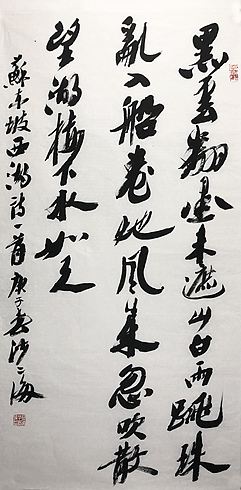 黑雲翻墨未遮山白雨跳珠
亂入船卷地風來忽吹散
望湖樓下水如天
蘇東坡西湖詩一首庚子